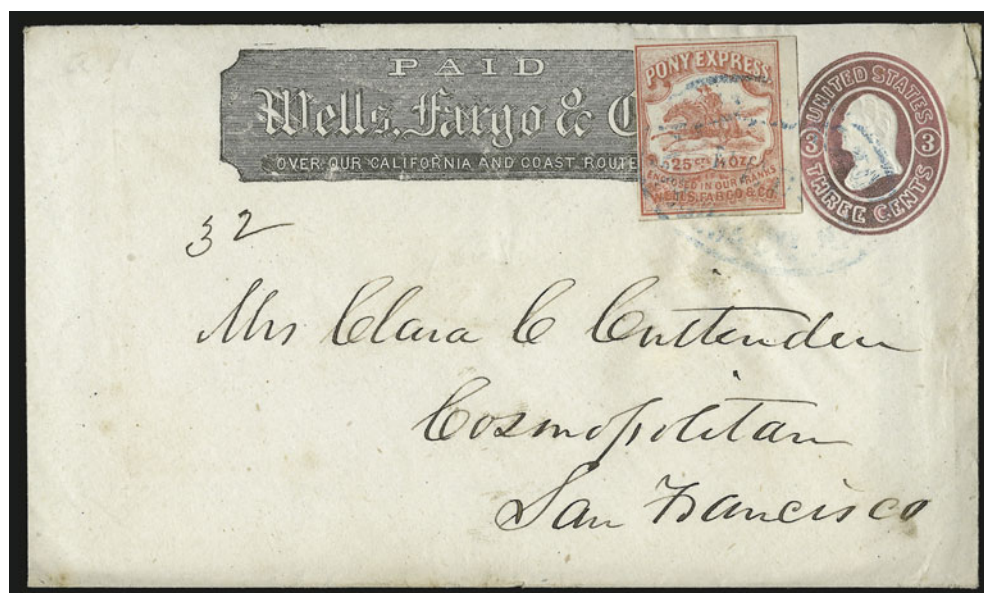 PAID
Wells, Fargo & C
OVER OUR CALIFORNIA AND COAST ROUTE
PONY EXPRESS
25 cts ½ OZ.
ENCLOSED IN OUR FRANKS
WELLS, FARGO & CO.
UNITED STATES
3 3
THREE CENTS
32
Mrs Clara C Cruttenden
Cosmopolitan
San Francisco